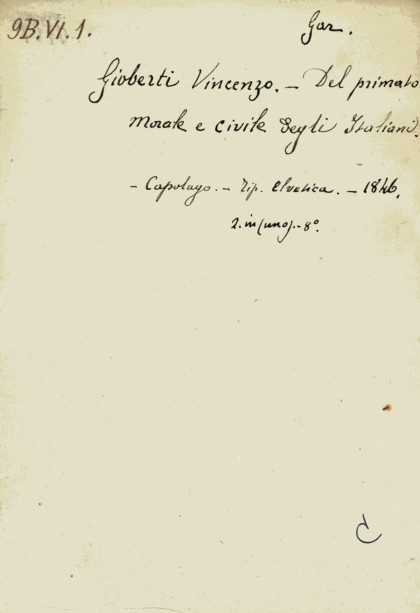 9B.VI.1.
Gar.
Gioberti Vincenzo. – Del primato
morale e civile degli Italiani.
– Capolago. – Tip. Elvetica. – 1846.
2. in (uno). - 8°.
C